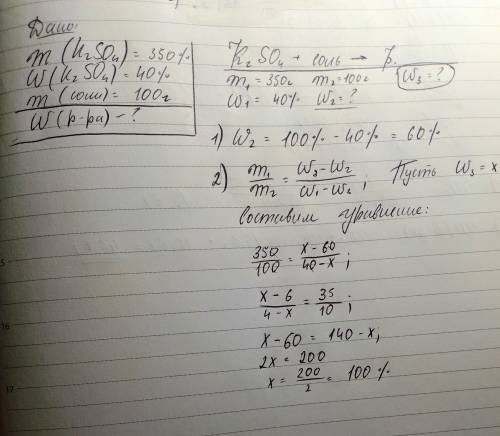 Дано:
m (K₂SO₄) = 350%
W (K₂SO₄) = 40%
m (соли) = 100г
W (р-ра) - ?
K₂SO₄ + соль → р.
m₁ = 350г m₂ = 100г W₃ = ?
W₁ = 40% W₂ = ?
1) W₂ = 100% - 40% = 60%
2) m₁/m₂ = W₃-W₂/W₁-W₂; Пусть W₃ = x
Составим уравнение:
350/100 = x-60/40-x;
x-6/4-x = 35/10;
x-60 = 140-x;
2x = 200
x = 200/2 = 100%
16
17